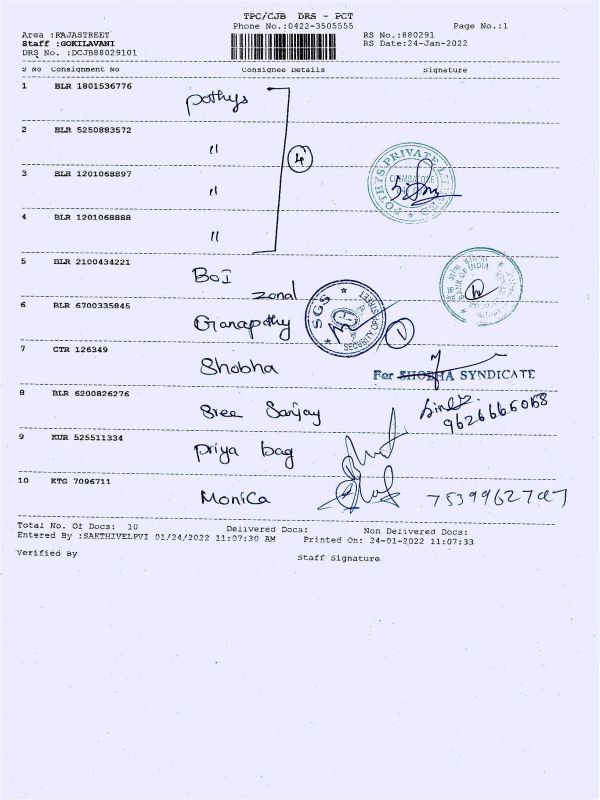 TPC/CJB DRS - PCT
Phone No.:0422-3505555
Page No.:1
Area :RAJASTREET
RS No.:880291
Staff :GOKILAVANI
RS Date:24-Jan-2022
DRS No. :DCJB88029101
S No Consignment No Consignee Details Signature
1 BLR 1801536776 pothys
2 BLR 5250883572 "
4
3 BLR 1201068897 "
POTHYS PRIVATE LIMITED
COIMBATORE
4 BLR 1201068888 "
5 BLR 2100434221 BOI
zonal
BANK OF INDIA
6 BLR 6700335845 Ganapathy
SGS
7 CTR 126349 Shobha
For SHOBHA SYNDICATE
8 BLR 6200826276 Sree Sanjay
9626666068
9 KUR 525511334 priya bag
10 KTG 7096711 Monica
Total No. Of Docs: 10 Delivered Docs: Non Delivered Docs:
Entered By :SAKTHIVELPVI 01/24/2022 11:07:30 AM Printed On: 24-01-2022 11:07:33
Verified By Staff Signature